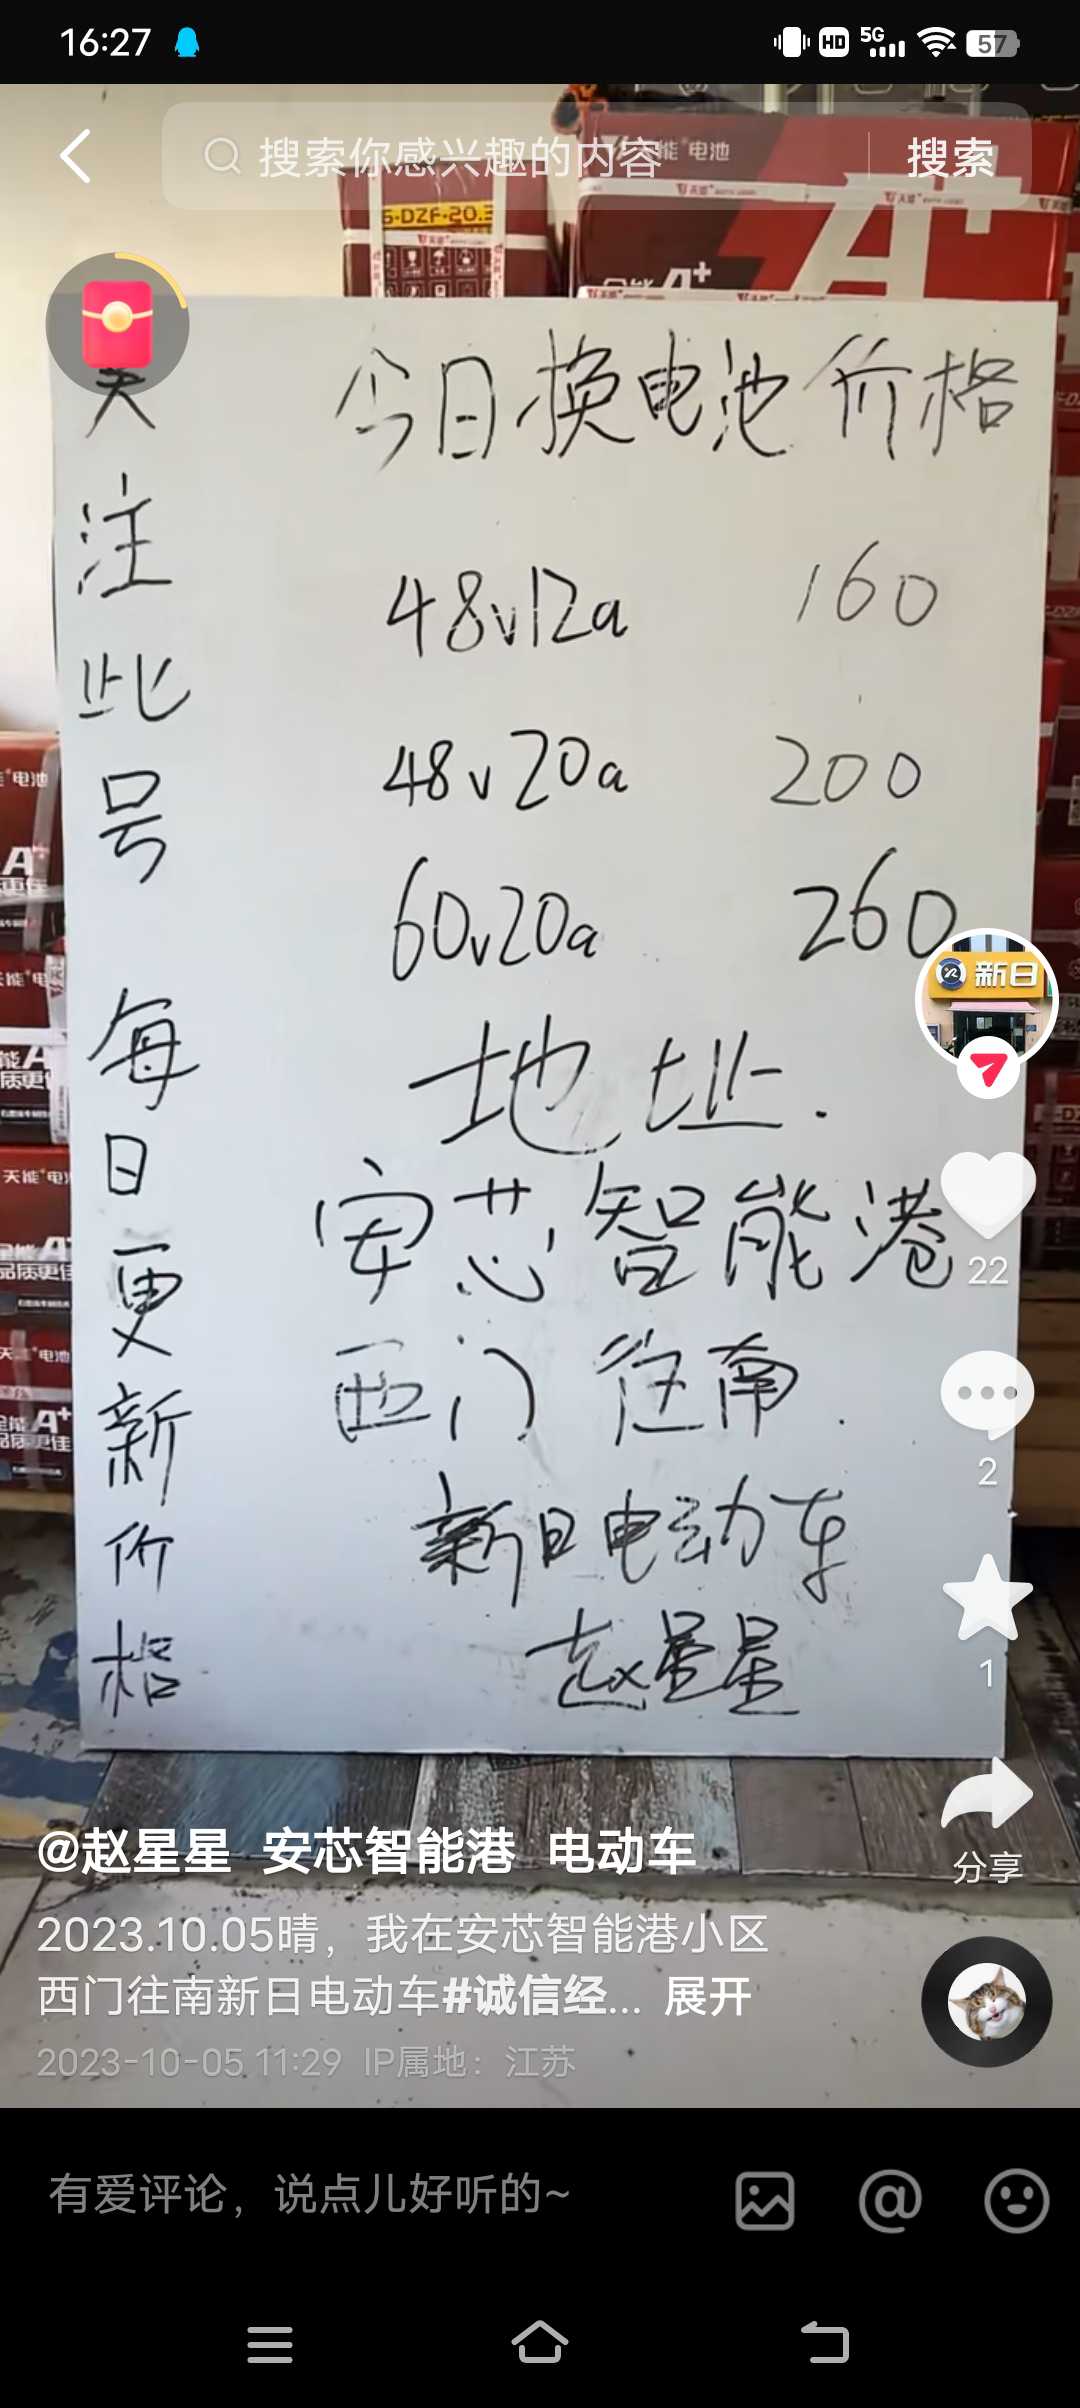 16:27
HD 5G 57
搜索你感兴趣的内容 搜索
天能 电池
6-DZF-20.3
A+
今日换电池价格
48v12a 160
48v20a 200
60v20a 260
地址.
安芯智能港
西门往南.
新日电动车
赵星星
关注此号 每日更新价格
新日
22
2
1
分享
@赵星星 安芯智能港 电动车
2023.10.05晴，我在安芯智能港小区
西门往南新日电动车#诚信经... 展开
2023-10-05 11:29 IP属地：江苏
有爱评论，说点儿好听的~